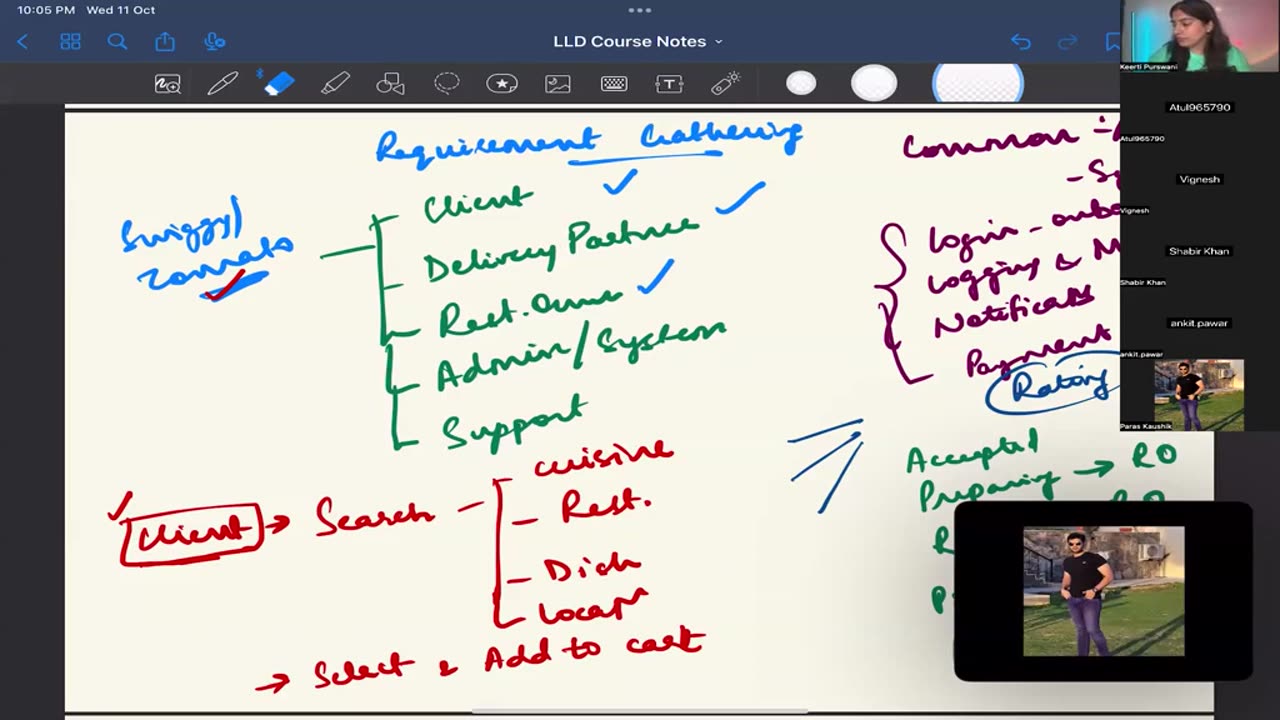 10:05 PM Wed 11 Oct
LLD Course Notes
Keerti Purswani
Atul965790
Atul965790
Vignesh
Vignesh
Shabir Khan
Shabir Khan
ankit.pawar
ankit.pawar
Paras Kaushik
Requirement Gathering
Swiggy/
Zomato
Client
Delivery Partner
Rest. Owner
Admin/System
Support
Client → Search
cuisine
Rest.
Dish
→ Select & Add to cart
Common
Login -
Logging &
Payment
Rating
Accepted
Preparing → RO
RO